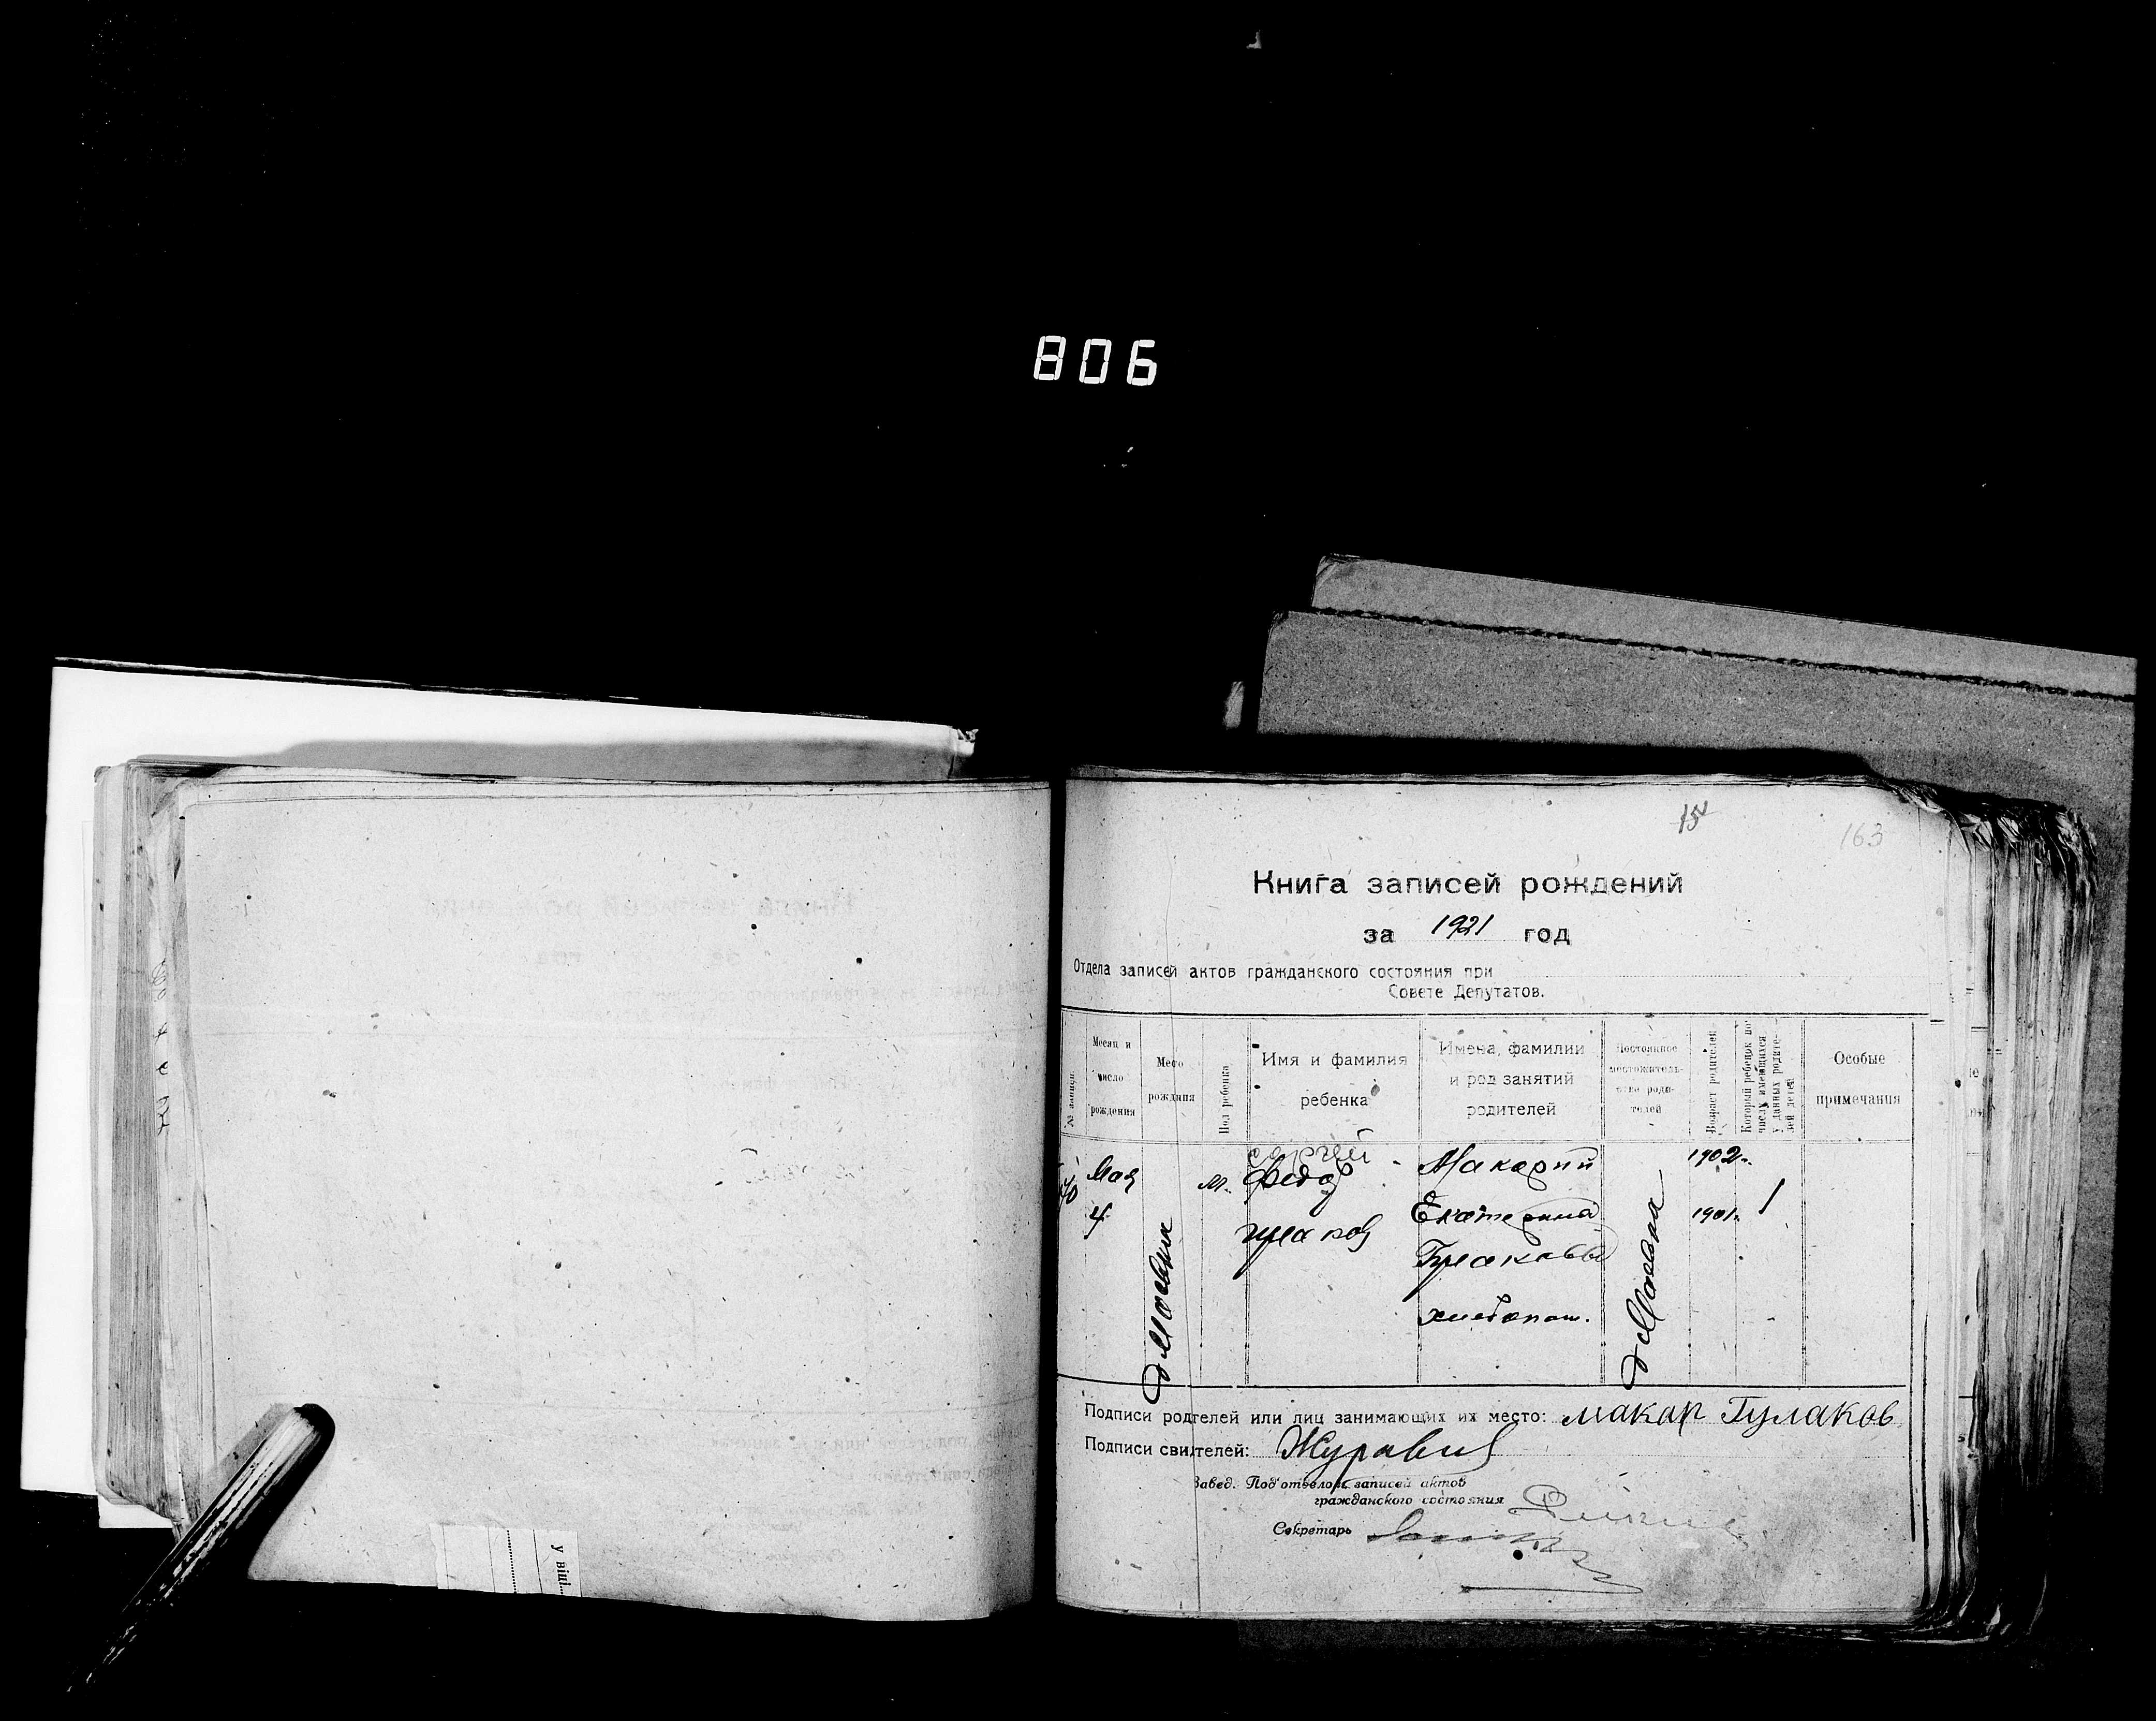 806
15
163
Книга записей рождений
за 1921 год
Отдела записей актов гражданского состояния при
Совете Депутатов.
№ записи.
Месяц и число рождения
Место рождния
Пол ребенка
Имя и фамилия ребенка
Имена, фамилии и род занятий родителей
Постоянное местожитель-ство роди-телей
Возраст родителей
Который ребенок по числу имеющихся у данных родите-лей детей
Особые примечания
70
Мая
4
м.
Сергей
Федор
Гулаков
Макарий
Екатерина
Гулаковы
хлебопаш.
1902.
1901.
1
Подписи родтелей или лиц занимающих их место: Макар Гулаков
Подписи свидтелей: Журавлев
Завед. Под'отделом записей актов
гражданского состояния
Секретарь
у віці